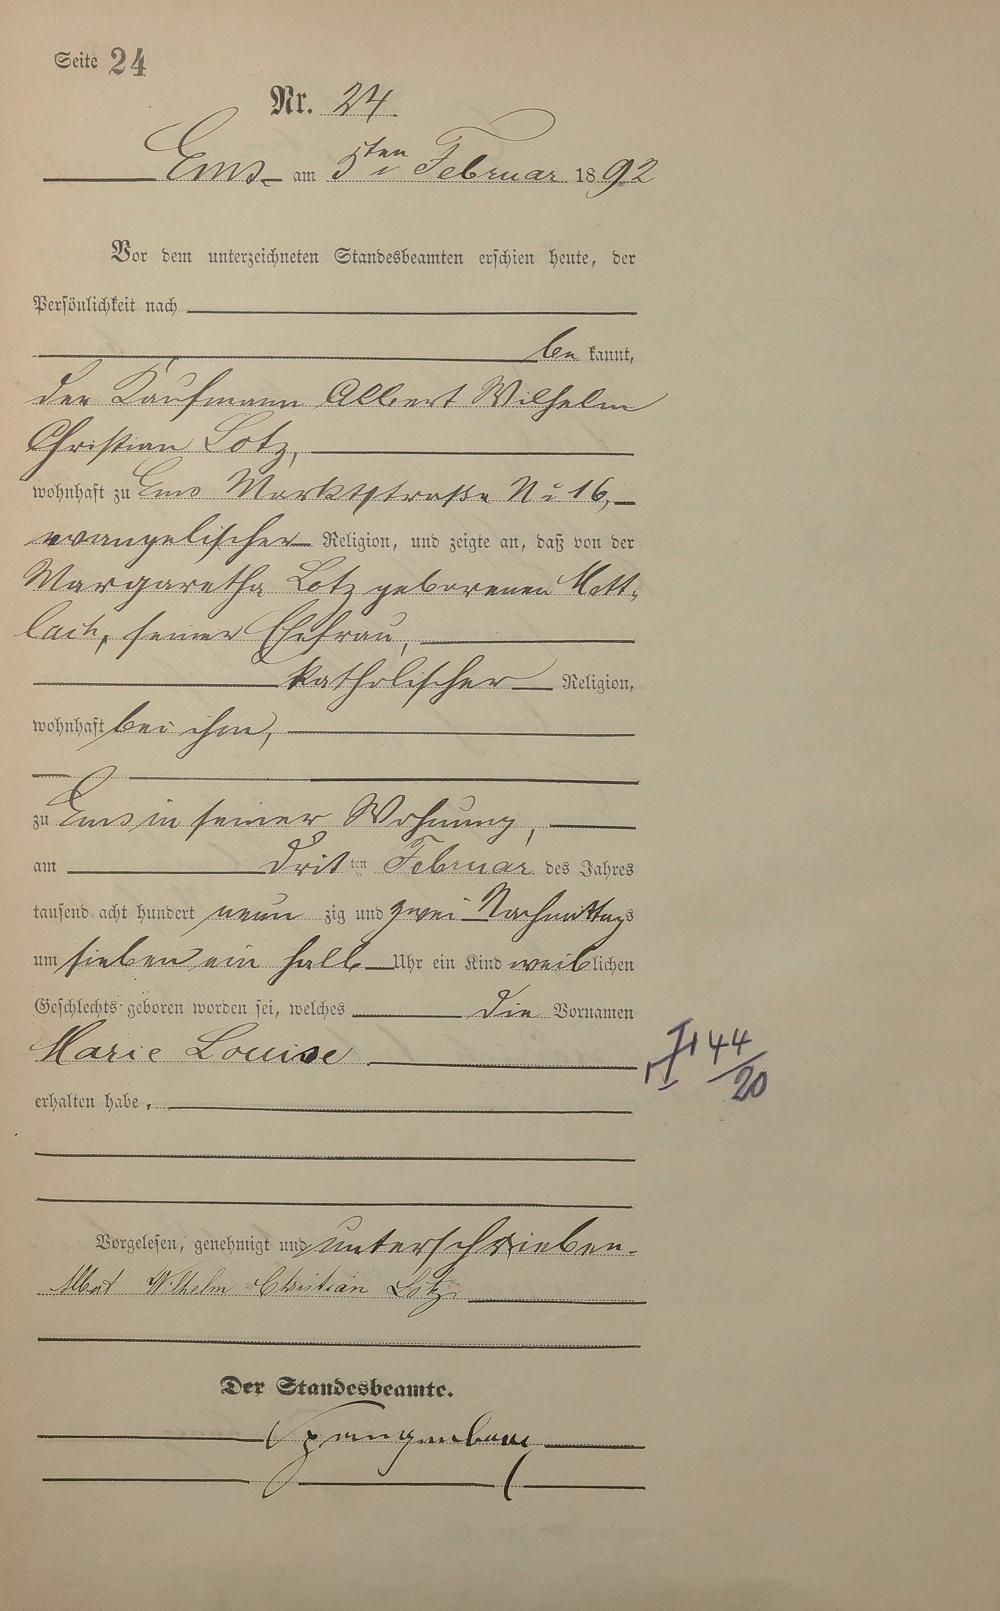 Seite 24
Nr. 24.
Ems am 5ten Februar 1892
Vor dem unterzeichneten Standesbeamten erschien heute, der
Persönlichkeit nach
be kannt,
der Kaufmann Albert Wilhelm
Christian Lotz,
wohnhaft zu Ems Marktstraße No 16,
evangelischer Religion, und zeigte an, daß von der
Margaretha Lotz geborenen Mett-
lach, seiner Ehefrau,
katholischer Religion,
wohnhaft bei ihm,
zu Ems in seiner Wohnung,
am Dritten Februar des Jahres
tausend acht hundert neun zig und zwei Nachmittags
um sieben ein halb Uhr ein Kind weiblichen
Geschlechts geboren worden sei, welches die Vornamen
Marie Louise
44
20
erhalten habe.
Vorgelesen, genehmigt und unterschrieben.
Albert Wilhelm Christian Lotz
Der Standesbeamte.
Spangenberg